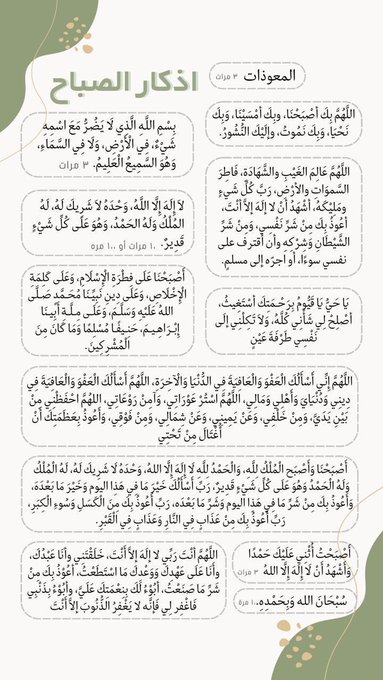 اذكار الصباح
المعوذات ٣ مرات
اللَّهُمَّ بِكَ أَصْبَحْنَا، وبِكَ أَمْسَيْنَا، وَبِكَ
نَحْيَا، وَبِكَ نَمُوتُ، وإلَيْكَ النُّشُورُ.
بِسْمِ اللَّهِ الَّذِي لَا يَضُرُّ مَعَ اسْمِهِ
شَيْءٌ، فِي الْأَرْضِ، وَلَا فِي السَّمَاءِ،
وَهُوَ السَّمِيعُ الْعَلِيمُ. ٣ مرات
اللَّهُمَّ عَالِمَ الغَيْبِ والشَّهَادَةِ، فَاطِرَ
السَّمَوَاتِ والأَرْضِ، رَبَّ كُلِّ شَيْءٍ
ومَلِيْكَهُ، أَشْهَدُ أَنْ لا إِلَهَ إِلَّا أَنْتَ،
أَعُوذُ بِكَ مِنْ شَرِّ نَفْسِي، وَمِنْ شَرِّ
الشَّيْطَانِ وَشِرْكِهِ وأن أقترف على
نفسي سوءًا، أو أجرّه إلى مسلم.
لَا إِلَهَ إِلَّا اللَّهُ، وَحْدَهُ لَا شَرِيكَ لَهُ، لَهُ
المُلْكُ وَلَهُ الحَمْدُ، وَهُوَ عَلَى كُلِّ شَيْءٍ
قَدِيرٌ. ١٠ مرات أو ١٠٠ مره
أَصْبَحْنَا عَلَى فِطْرَةِ الْإِسْلَامِ، وَعَلَى كَلِمَةِ
الْإِخْلَاصِ، وَعَلَى دِينِ نَبِيِّنَا مُحَمَّدٍ صَلَّى
اللهُ عَلَيْهِ وَسَلَّمَ، وَعَلَى مِلَّةِ أَبِينَا
إِبْرَاهِيمَ، حَنِيفًا مُسْلِمًا وَمَا كَانَ مِنَ
الْمُشْرِكِينَ.
يَا حَيُّ يَا قَيُّومُ بِرَحْمَتِكَ أَسْتَغِيثُ،
أَصْلِحْ لِي شَأْنِي كُلَّهُ، وَلَا تَكِلْنِي إِلَى
نَفْسِي طَرْفَةَ عَيْنٍ
اللَّهُمَّ إِنِّي أَسْأَلُكَ العَفْوَ وَالعَافِيَةَ فِي الدُّنْيَا وَالْآخِرَةِ، اللَّهُمَّ أَسْأَلُكَ العَفْوَ وَالعَافِيَةَ فِي
دِينِي وَدُنْيَايَ وَأَهْلِي وَمَالِي، اللَّهُمَّ اسْتُرْ عَوْرَاتِي، وَآمِنْ رَوْعَاتِي، اللهُمَّ احْفَظْنِي مِنْ
بَيْنِ يَدَيَّ، وَمِنْ خَلْفِي، وَعَنْ يَمِينِي، وَعَنْ شِمَالِي، وَمِنْ فَوْقِي، وَأَعُوذُ بِعَظَمَتِكَ أَنْ
أُغْتَالَ مِنْ تَحْتِي
أَصْبَحْنَا وَأَصْبَحَ المُلْكُ لِلَّهِ، وَالْحَمْدُ لِلَّهِ لَا إِلَهَ إِلَّا اللهُ، وَحْدَهُ لَا شَرِيكَ لَهُ، لَهُ المُلْكُ
وَلَهُ الحَمْدُ وَهُوَ عَلَى كُلِّ شَيْءٍ قَدِيرٌ، رَبِّ أَسْأَلُكَ خَيْرَ مَا فِي هَذَا اليوم وَخَيْرَ مَا بَعْدَهُ،
وَأَعُوذُ بِكَ مِنْ شَرِّ مَا فِي هَذَا اليوم وَشَرِّ مَا بَعْدَهُ، رَبِّ أَعُوذُ بِكَ مِنَ الكَسَلِ وَسُوءِ الكِبَرِ،
رَبِّ أَعُوذُ بِكَ مِنْ عَذَابٍ فِي النَّارِ وَعَذَابٍ فِي القَبْرِ.
أَصْبَحْتُ أُثْنِي عَلَيْكَ حَمْدًا
وَأَشْهَدُ أَنْ لَا إِلَهَ إِلَّا اللهُ ٣ مرات
سُبْحَانَ الله وَبِحَمْدِهِ. ١٠٠ مرة
اللَّهُمَّ أَنْتَ رَبِّي لا إِلَهَ إِلَّا أَنْتَ، خَلَقْتَنِي وأَنَا عَبْدُكَ،
وأَنَا عَلَى عَهْدِكَ وَوَعْدِكَ مَا اسْتَطَعْتُ، أَعُوْذُ بِكَ مِنْ
شَرِّ مَا صَنَعْتُ، أَبُوْءُ لَكَ بِنِعْمَتِكَ عَلَيَّ، وأَبُوْءُ بِذَنْبِي
فَاغْفِر لِي فَإِنَّه لا يَغْفِرُ الذُّنُوبَ إِلاَّ أَنْتَ